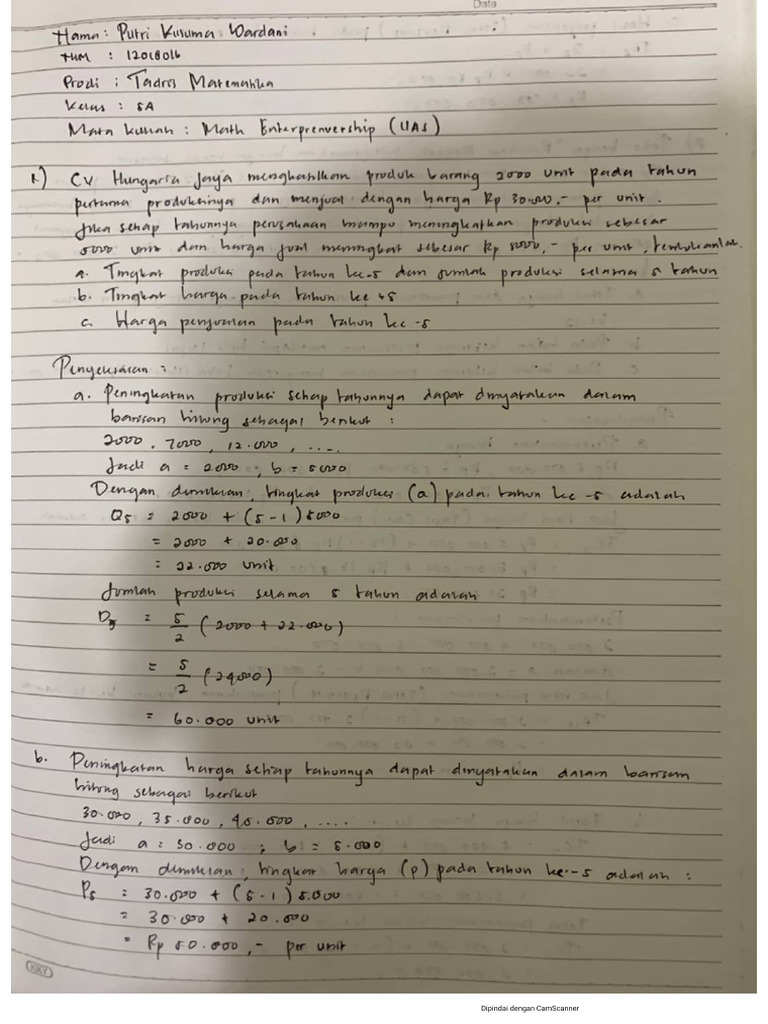 Data
Nama : Putri Kusuma Wardani
NIM : 12018016
Prodi : Tadris Matematika
Kelas : 5A
Mata kuliah : Math Enterprenvership (UAS)
1.) CV Hungaria Jaya menghasilkan produk barang 2000 unit pada tahun
pertama produksinya dan menjual dengan harga Rp 30.000,- per unit.
Jika setiap tahunnya perusahaan mampu meningkatkan produksi sebesar
5000 unit dan harga jual meningkat sebesar Rp 5000,- per unit, tentukanlah.
a. Tingkat produksi pada tahun ke-5 dan jumlah produksi selama 5 tahun
b. Tingkat harga pada tahun ke 5
c. Harga penjualan pada tahun ke -5
Penyelesaian :
a. Peningkatan produksi setiap tahunnya dapat dinyatakan dalam
barisan hitung sebagai berikut :
2000, 7000, 12.000, ....
Jadi a = 2000 ; b = 5000
Dengan demikian, tingkat produksi (Q) pada tahun ke -5 adalah
Q5 = 2000 + (5-1) 5000
= 2000 + 20.000
= 22.000 unit
Jumlah produksi selama 5 tahun adalah
D5 = 5/2 (2000 + 22.000)
= 5/2 (24000)
= 60.000 unit
b. Peningkatan harga setiap tahunnya dapat dinyatakan dalam barisan
hitung sebagai berikut
30.000, 35.000, 40.000, ....
Jadi a = 30.000 ; b = 5.000
Dengan demikian, tingkat harga (p) pada tahun ke-5 adalah :
P5 = 30.000 + (5-1) 5.000
= 30.000 + 20.000
= Rp 50.000,- per unit
KKY
Dipindai dengan CamScanner